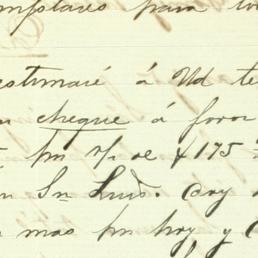 emplares para
estimaré á Ud te
cheque á favor
pr n/c de $175
n Sn Luis. Cary
mas pr hoy, y